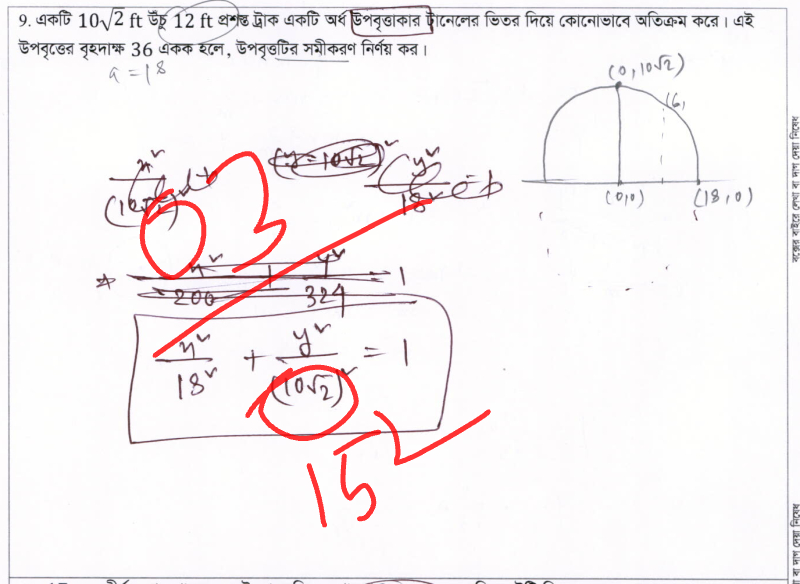 9. একটি 10√2 ft উঁচু 12 ft প্রশস্ত ট্রাক একটি অর্ধ উপবৃত্তাকার টানেলের ভিতর দিয়ে কোনোভাবে অতিক্রম করে। এই
উপবৃত্তের বৃহদাক্ষ 36 একক হলে, উপবৃত্তটির সমীকরণ নির্ণয় কর।
a = 18
(0, 10√2)
(6,
(0,0) (18, 0)
03
x²/200 + y²/324 = 1
x²/18² + y²/(10√2)² = 1
15²
বক্সের বাইরে লেখা বা দাগ দেয়া নিষেধ
বা দাগ দেয়া নিষেধ